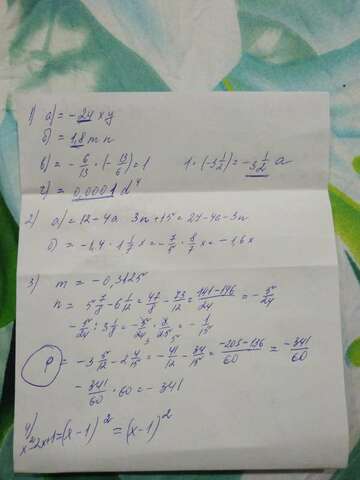 1) а) = -24xy
б) = 1,8 mn
в) = - 6/13 · (- 13/6) = 1   1 · (-3 1/2) = -3 1/2 a
г) = 0,0001 d⁴
2) а) = 12 - 4a   3n + 15 = 27 - 4a - 3n
б) = -1,4 · 1 1/7 x = - 7/5 · 8/7 x = -1,6x
3) m = -0,3125
n = 5 7/8 - 6 1/12 = 47/8 - 73/12 = 141-146/24 = - 5/24
- 5/24 : 3 1/8 = - 5/24 · 8/25 = - 1/15
p = -3 5/12 - 2 4/15 = - 41/12 - 34/15 = -205-136/60 = -341/60
- 341/60 · 60 = -341
4) x²-2x+1=(x-1)² = (x-1)²